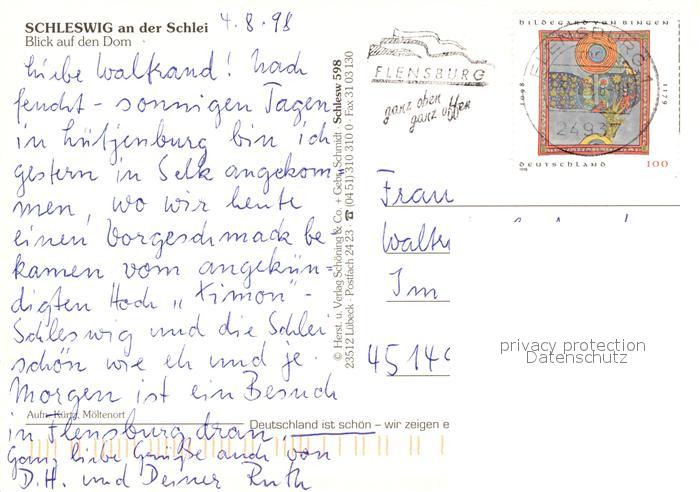 SCHLESWIG an der Schlei
Blick auf den Dom
4.8.98
Liebe Waltraud! Nach
feucht-sonnigen Tagen
in Lütjenburg bin ich
gestern in Selk angekom-
men, wo wir heute
einen Vorgeschmack be
kamen vom angekün-
digten Hoch „Timon"-
Schleswig und die Schlei
schön wie eh und je.
Morgen ist ein Besuch
in Flensburg dran,
Ganz liebe Grüße auch von
D.H. und Deiner Ruth
Aufn. Kürtz, Möltenort
Deutschland ist schön – wir zeigen e
© Herst. u. Verlag Schöning & Co. + Gebr. Schmidt · Schlesw 598
23512 Lübeck · Postfach 24 23 ☎ (04 51) 310 310 0 - Fax 31 03 130
FLENSBURG
ganz oben
ganz offen
FLENSBURG 1
24937
HILDEGARD VON BINGEN
1098
1179
DEUTSCHLAND
100
1998
Frau
Waltr
Im
45140
privacy protection
Datenschutz